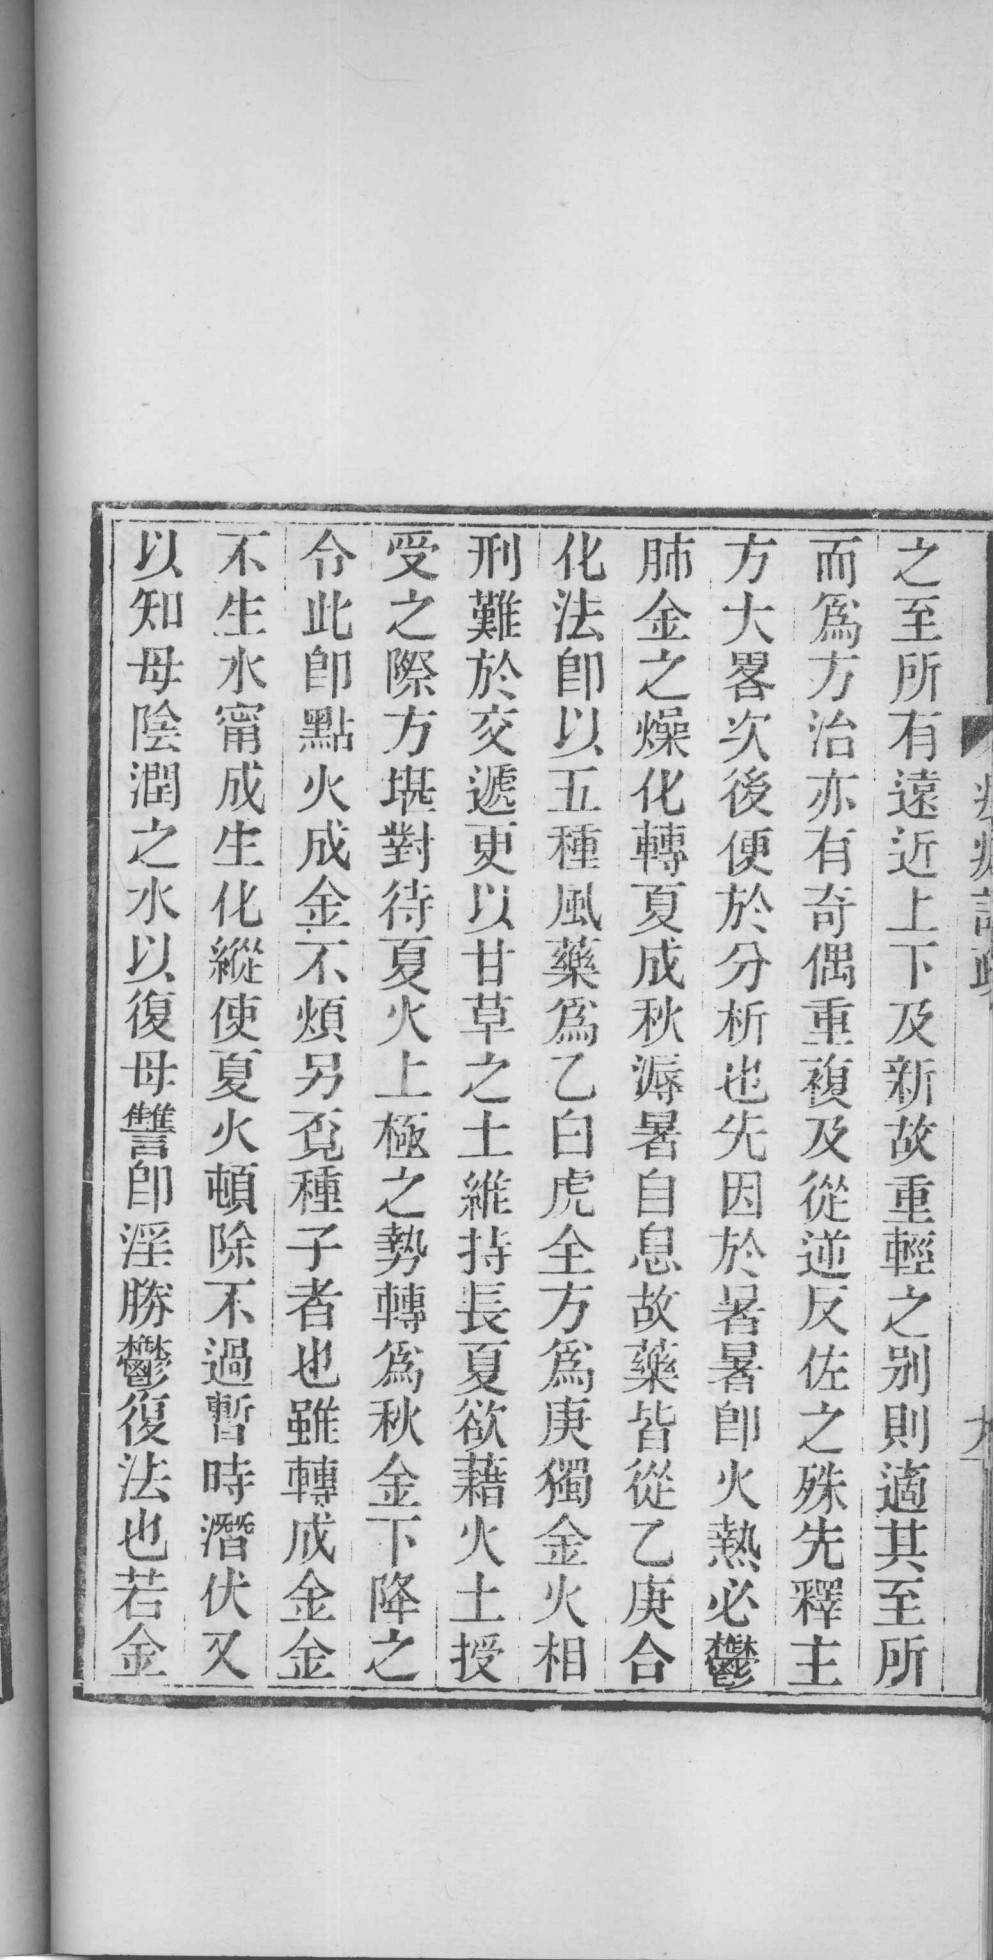 之至所有遠近上下及新故重輕之别則適其至所
而爲方治亦有奇偶重複及從逆反佐之殊先釋主
方大畧次後便於分析也先因於暑暑卽火熱必鬱
肺金之燥化轉夏成秋溽暑自息故藥皆從乙庚合
化法卽以五種風藥爲乙白虎全方爲庚獨金火相
刑難於交遞更以甘草之土維持長夏欲藉火土授
受之際方堪對待夏火上極之勢轉爲秋金下降之
令此卽點火成金不煩另覔種子者也雖轉成金金
不生水甯成生化縱使夏火頓除不過暫時潛伏又
以知母陰潤之水以復母讐卽淫勝鬱復法也若金